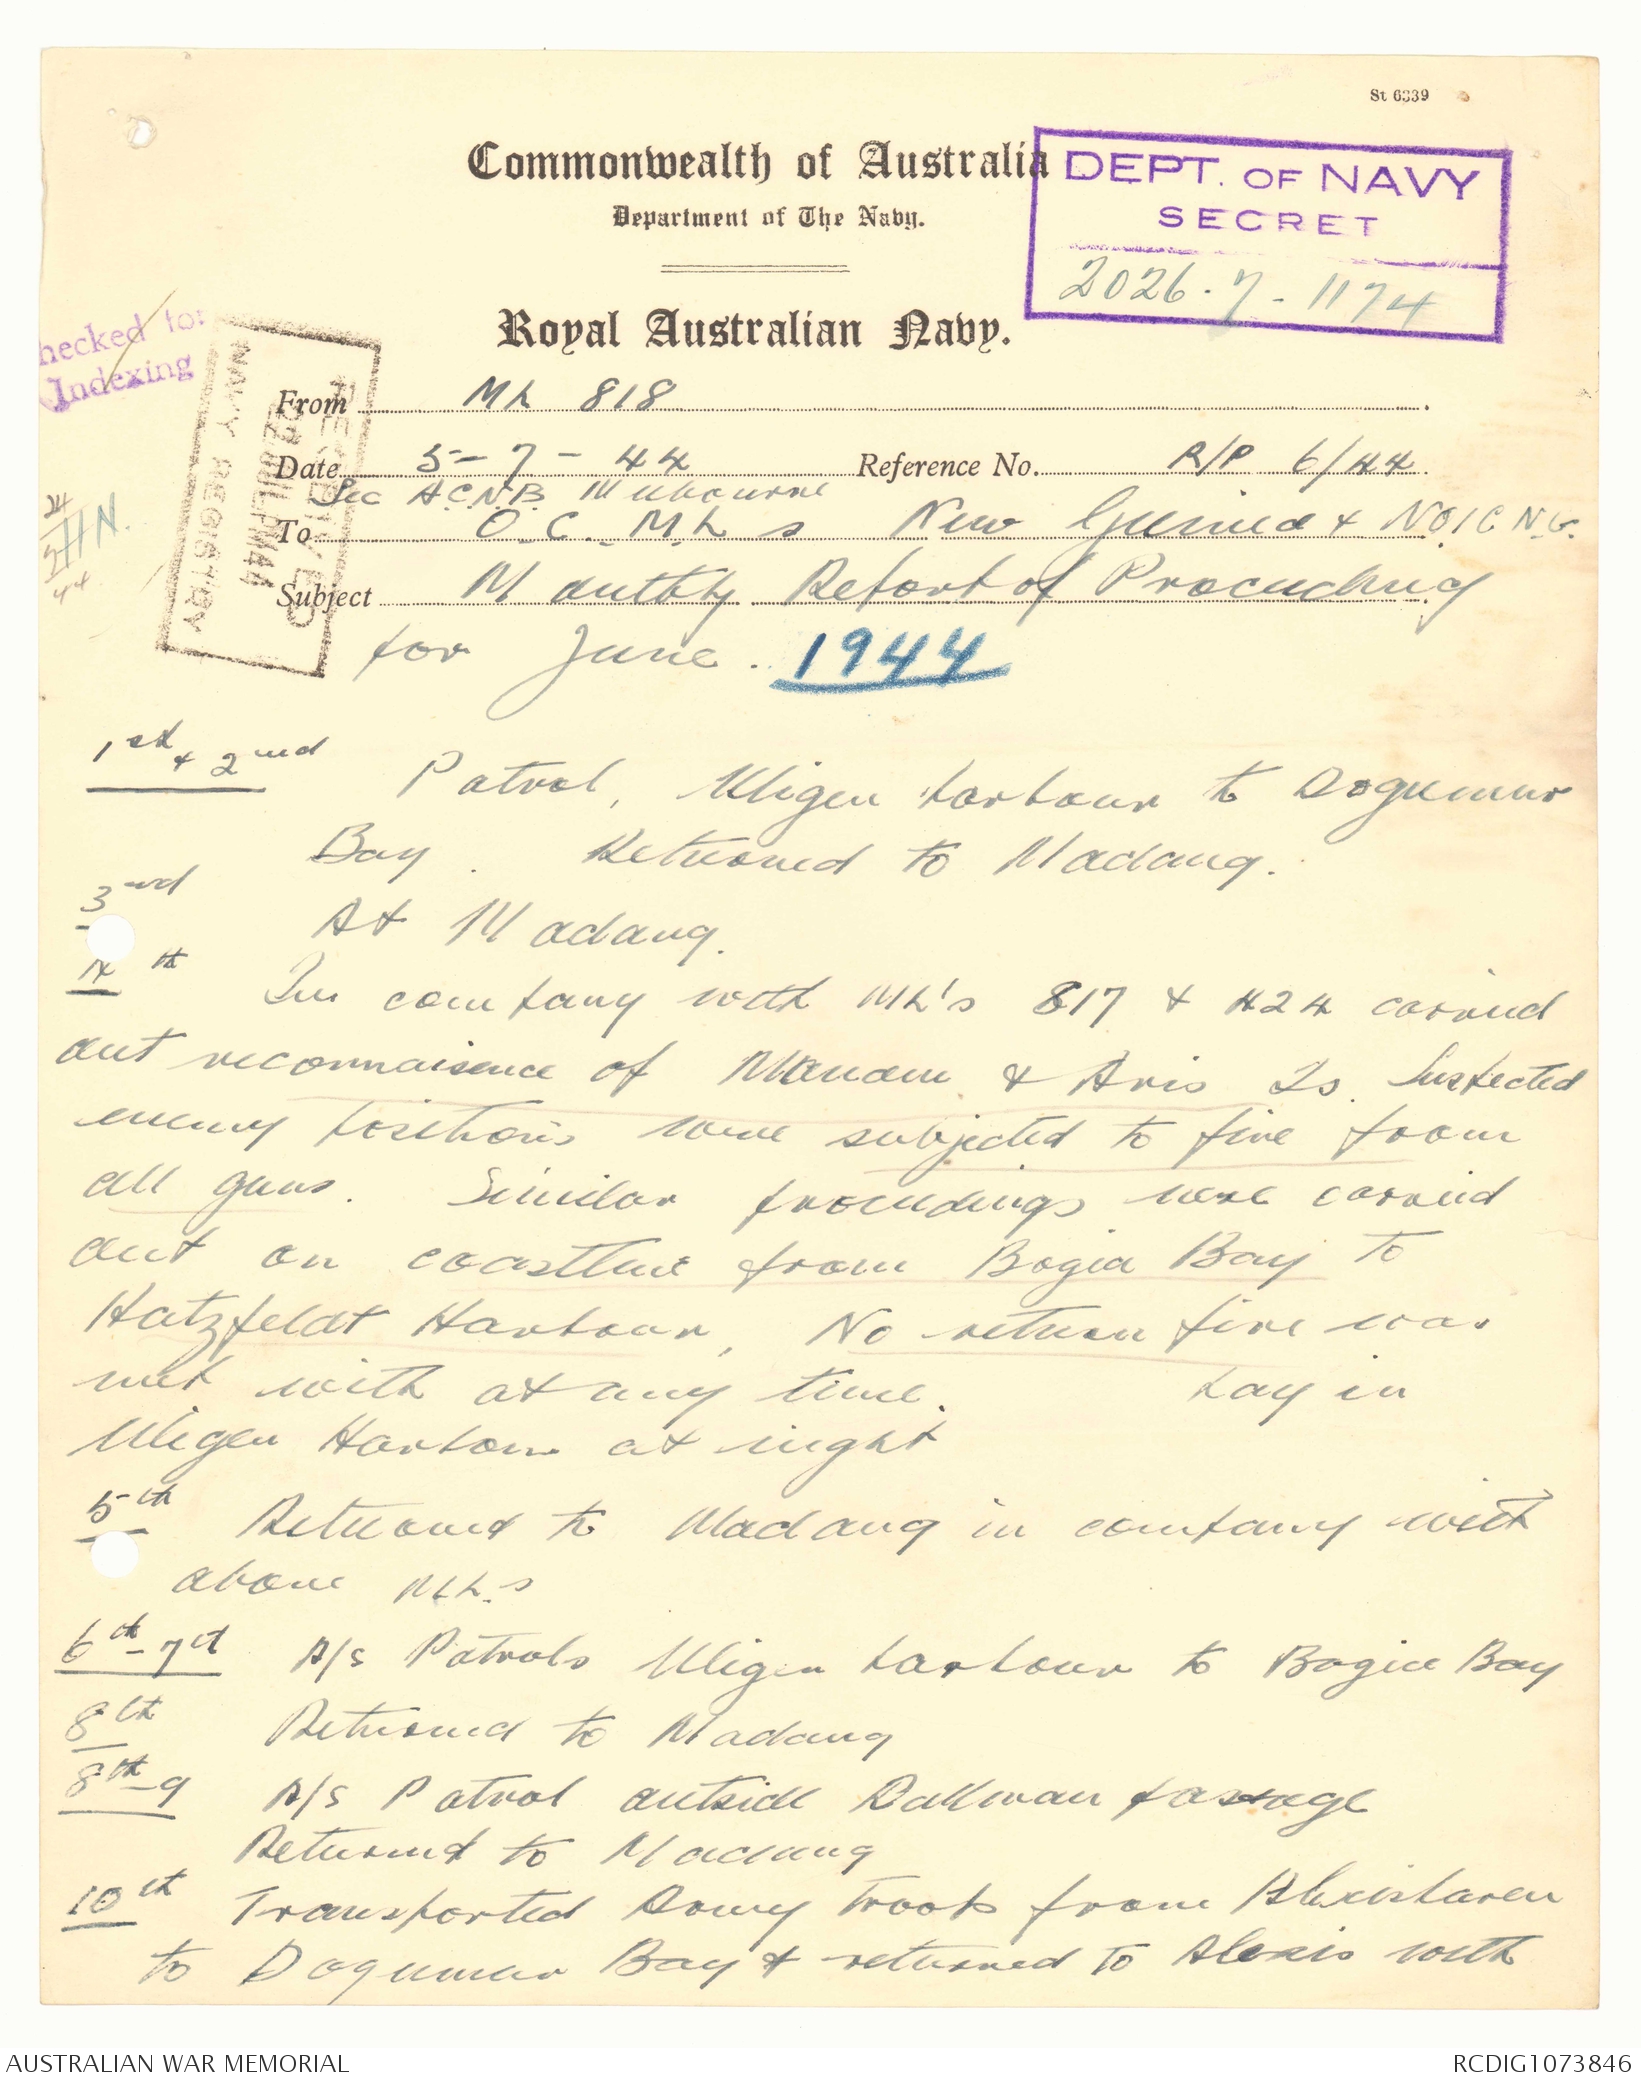 St 6339
Commonwealth of Australia
Department of The Navy.
DEPT. OF NAVY
SECRET
2026.7.1174
Royal Australian Navy.
hecked for
Indexing
RECEIVED
NAVY REGISTRY
From ML 818
Date 5-7-44 Reference No. R/P 6/44
Sec A.C.N.B. Melbourne
To O.C. M.L s New Guinea & NOIC N.G.
Subject Monthly Report of Proceeding
for June. 1944
1st & 2nd Patrol, Uligen harbour to Dogumur
Bay. Returned to Madang.
3rd At Madang.
4th In company with ML's 817 & 424 carried
out reconnaisence of Manam & Aris Is. Suspected
enemy positions were subjected to fire from
all guns. Similar proceedings were carried
out on coastline from Bogia Bay to
Hatzfeldt Harbour, No return fire was
met with at any time. Lay in
Uligen Harbour at night
5th Returned to Madang in company with
above ML.s
6th - 7th A/S Patrols Uligen harbour to Bogia Bay
8th Returned to Madang
8th - 9 A/S Patrol outside Dallman passage
Returned to Madang
10th Transported Army troops from Alexishaven
to Dogumur Bay & returned to Alexis with
AUSTRALIAN WAR MEMORIAL
RCDIG1073846